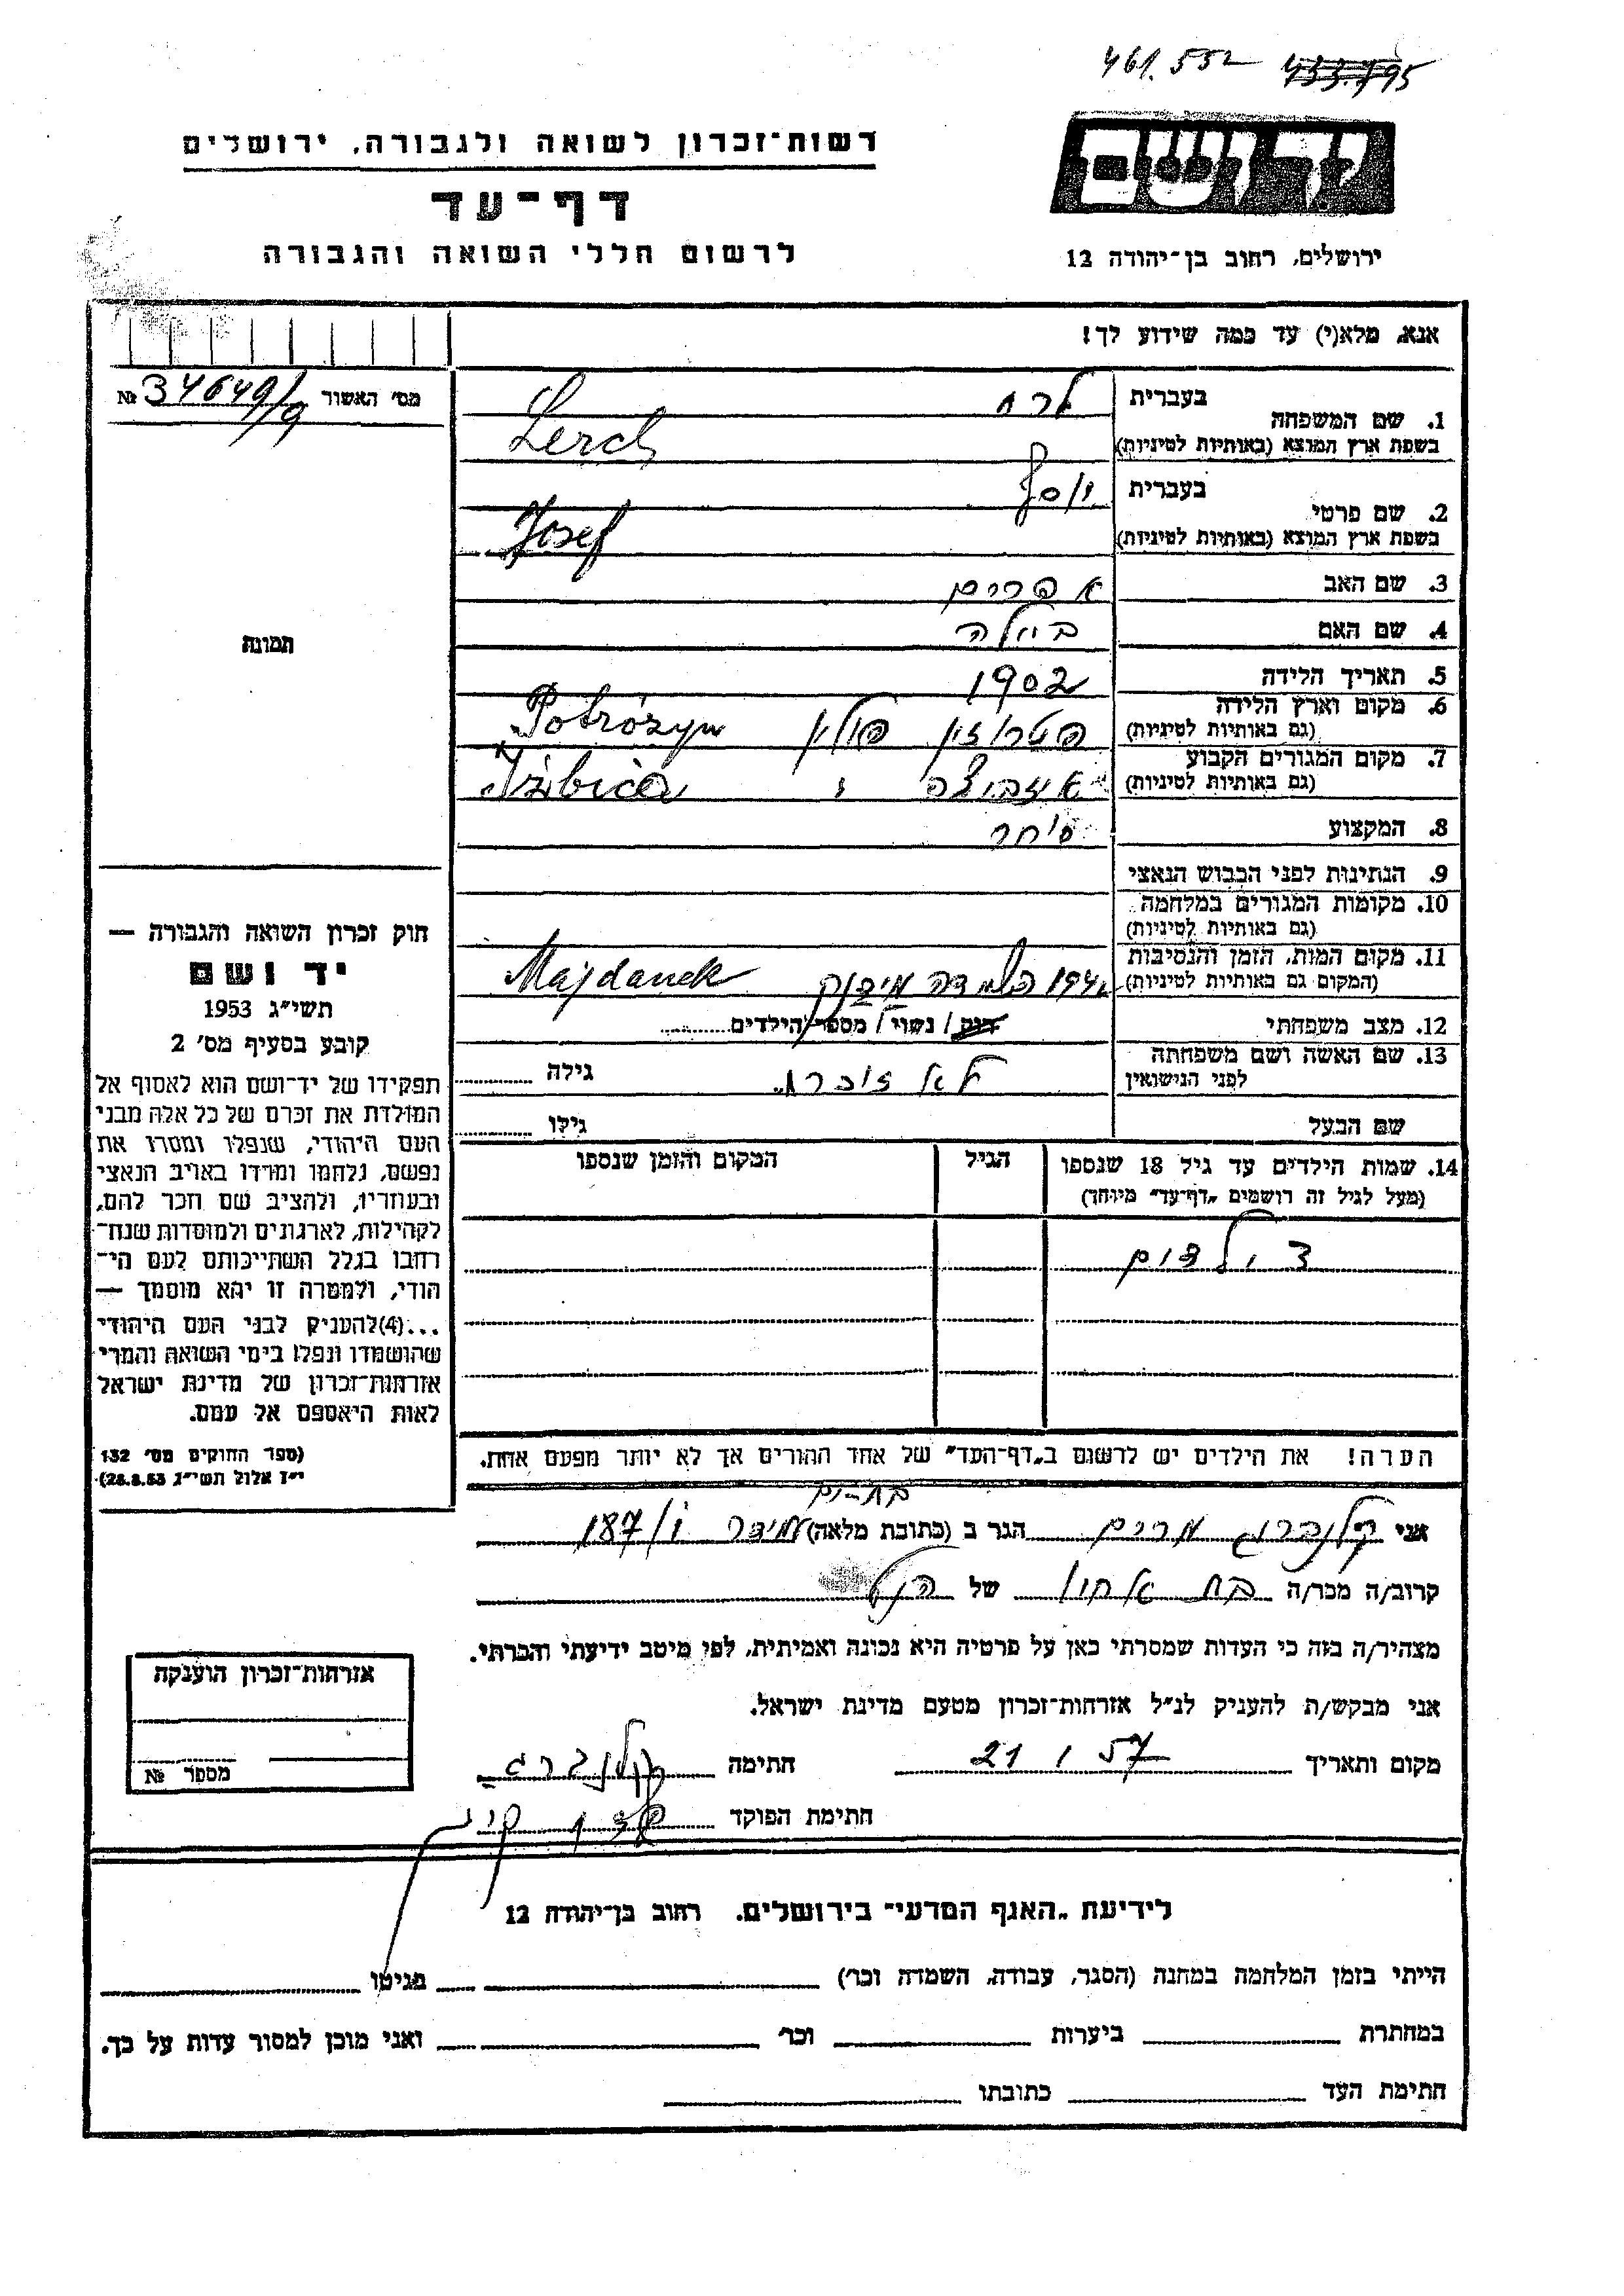 461.552 433.795
יד ושם
רשות־זכרון לשואה ולגבורה, ירושלים
דף־עד
לרשום חללי השואה והגבורה
ירושלים, רחוב בן־יהודה 12
אנא, מלא(י) עד כמה שידוע לך!
מס׳ האשור № 34649/9
1. שם המשפחה
בעברית לרח
בשפת ארץ המוצא (באותיות לטיניות) Lerch
2. שם פרטי
בעברית יוסף
בשפת ארץ המוצא (באותיות לטיניות) Josef
3. שם האב אפרים
4. שם האם ביילה
5. תאריך הלידה 1902
6. מקום וארץ הלידה
(גם באותיות לטיניות) פטרוזין פולין Potrózyn
7. מקום המגורים הקבוע
(גם באותיות לטיניות) איזביצה Iżbica
8. המקצוע סוחר
9. הנתינות לפני הכבוש הנאצי
10. מקומות המגורים במלחמה
(גם באותיות לטיניות)
11. מקום המות, הזמן והנסיבות
(המקום גם באותיות לטיניות) השמדה מידנק Majdanek
12. מצב משפחתי רווק / נשוי / מספר הילדים
13. שם האשה ושם משפחתה
לפני הנישואין לאה גילה
שם הבעל גילו
14. שמות הילדים עד גיל 18 שנספו
(מעל לגיל זה רושמים „דף־עד״ מיוחד)
הגיל
המקום והזמן שנספו
ילדים
הערה! את הילדים יש לרשום ב„דף־העד״ של אחד ההורים אך לא יותר מפעם אחת.
תמונה
חוק זכרון השואה והגבורה —
יד ושם
תשי״ג 1953
קובע בסעיף מס׳ 2
תפקידו של יד־ושם הוא לאסוף אל
המולדת את זכרם של כל אלה מבני
העם היהודי, שנפלו ומסרו את
נפשם, נלחמו ומרדו באויב הנאצי
ובעוזריו, ולהציב שם וזכר להם,
לקהילות, לארגונים ולמוסדות שנח־
רבו בגלל השתייכותם לעם הי־
הודי, ולמטרה זו יהא מוסמך —
...(4) להעניק לבני העם היהודי
שהושמדו ונפלו בימי השואה והמרי
אזרחות־זכרון של מדינת ישראל
לאות היאספם אל עמם.
(ספר החוקים מס׳ 132
י״ז אלול תשי״ג 28.8.53)
בת־ים
אני קלנברג מרים הגר ב (כתובת מלאה) עמידר 187/
קרוב/ה מכר/ה בת אחיו של הנ״ל
מצהיר/ה בזה כי העדות שמסרתי כאן על פרטיה היא נכונה ואמיתית, לפי מיטב ידיעתי והכרתי.
אני מבקש/ת להעניק לנ״ל אזרחות־זכרון מטעם מדינת ישראל.
מקום ותאריך 21 1 57 חתימה קלנברג
חתימת הפוקד
אזרחות־זכרון הוענקה
מספר №
לידיעת „האגף המדעי״ בירושלים. רחוב בן־יהודה 12
הייתי בזמן המלחמה במחנה (הסגר, עבודה, השמדה וכר) בגיטו
במחתרת ביערות וכר ואני מוכן למסור עדות על כך.
חתימת העד כתובתו